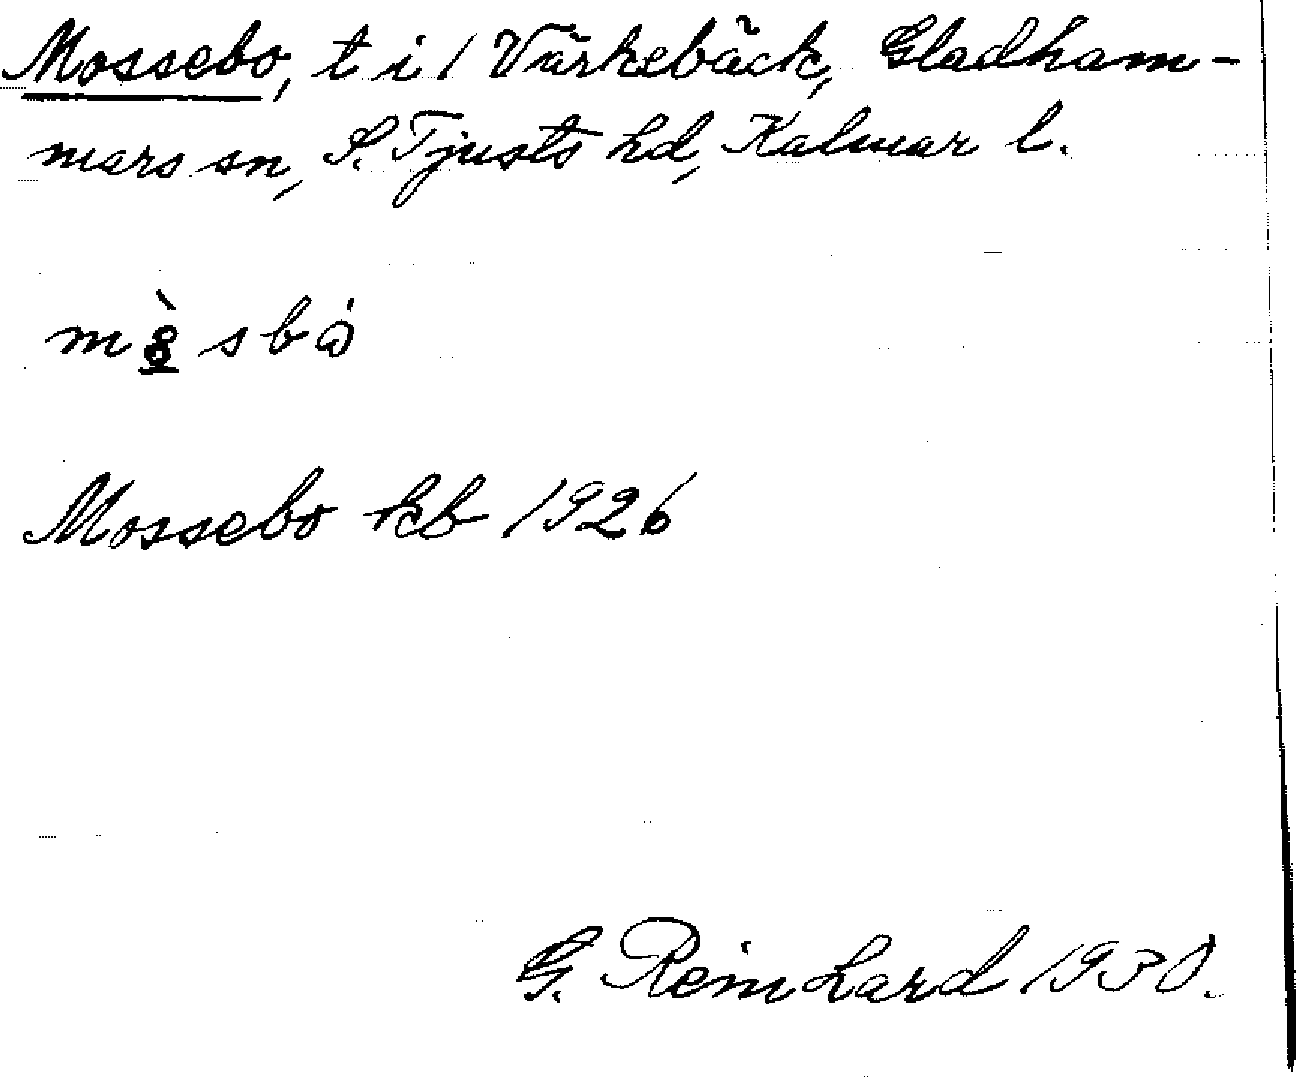 Mossebo, t i / Värkebäck, Gladham-
mars sn, S. Tjusts hd, Kalmar l.
Mossebo kb 1926
G. Reinhard 1930.